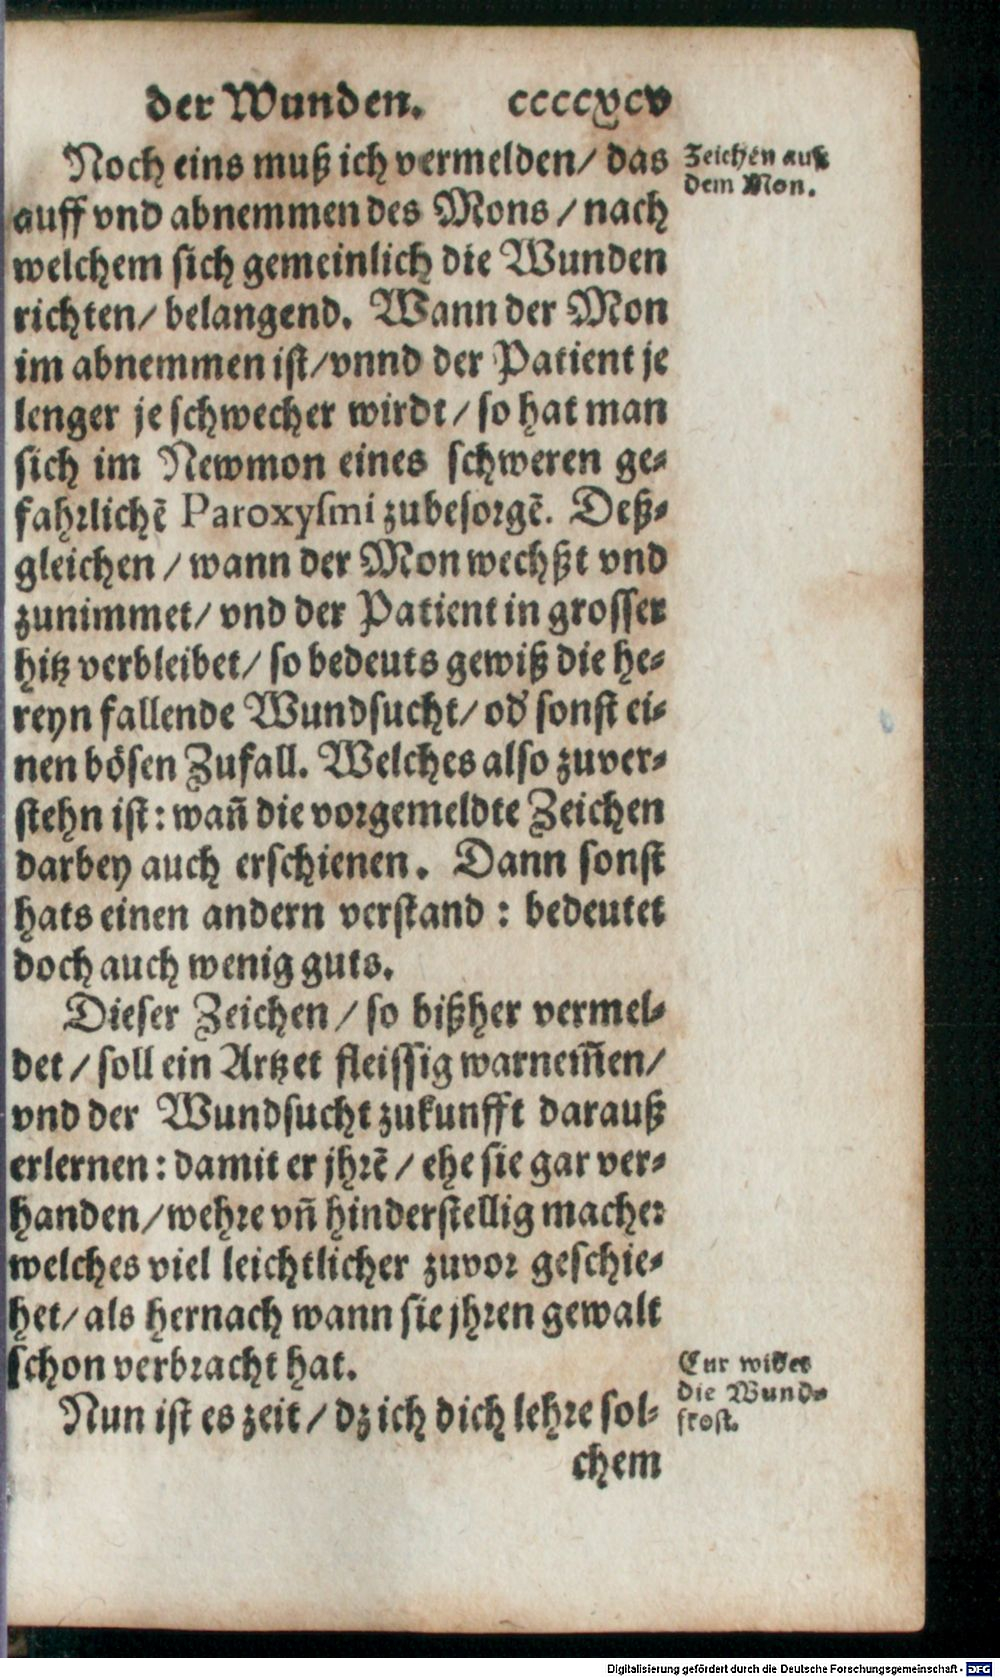 der Wunden. ccccxcv
Noch eins muß ich vermelden/ das
auff vnd abnemmen des Mons / nach
welchem sich gemeinlich die Wunden
richten/ belangend. Wann der Mon
im abnemmen ist/vnnd der Patient je
lenger je schwecher wirdt / so hat man
sich im Newmon eines schweren ge-
fahrlichē Paroxysmi zubesorgē. Deß-
gleichen / wann der Mon wechßt vnd
zunimmet/ vnd der Patient in grosser
hitz verbleibet/ so bedeuts gewiß die he-
reyn fallende Wundsucht/ od' sonst ei-
nen bösen Zufall. Welches also zuver-
stehn ist: wañ die vorgemeldte Zeichen
darbey auch erschienen. Dann sonst
hats einen andern verstand : bedeutet
doch auch wenig guts.
Dieser Zeichen / so bißher vermel-
det / soll ein Artzet fleissig warnem̃en/
vnd der Wundsucht zukunfft darauß
erlernen: damit er jhrē / ehe sie gar ver-
handen/wehre vñ hinderstellig mache:
welches viel leichtlicher zuvor geschie-
het/ als hernach wann sie jhren gewalt
schon verbracht hat.
Nun ist es zeit / dz ich dich lehre sol-
chem
Zeichen auß
dem Mon.
Cur wider
die Wund-
frost.
Digitalisierung gefördert durch die Deutsche Forschungsgemeinschaft - DFG